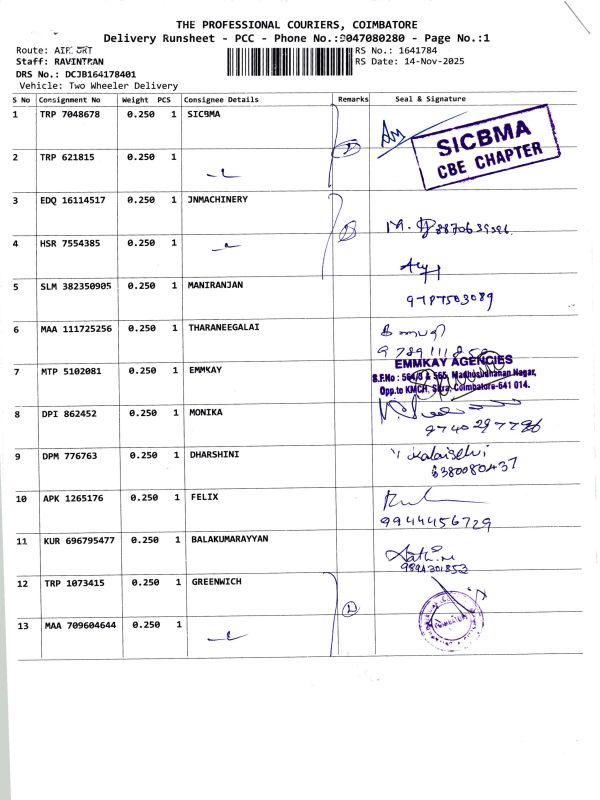 THE PROFESSIONAL COURIERS, COIMBATORE
Delivery Runsheet - PCC - Phone No.:9047080280 - Page No.:1
Route: AIR
RS No.: 1641784
Staff: RAVINTRAN
RS Date: 14-Nov-2025
DRS No.: DCJB164178401
Vehicle: Two Wheeler Delivery
S No Consignment No Weight PCS Consignee Details Remarks Seal & Signature
1 TRP 7048678 0.250 1 SICBMA
SICBMA
CBE CHAPTER
2 TRP 621815 0.250 1
3 EDQ 16114517 0.250 1 JNMACHINERY
4 HSR 7554385 0.250 1
5 SLM 382350905 0.250 1 MANIRANJAN
9787503089
6 MAA 111725256 0.250 1 THARANEEGALAI
7 MTP 5102081 0.250 1 EMMKAY
EMMKAY AGENCIES
S.F.No : 564/3 & 565, Madhusudhanan Nagar,
Opp.to KMCH, Sitra, Coimbatore-641 014.
8 DPI 862452 0.250 1 MONIKA
9740297796
9 DPM 776763 0.250 1 DHARSHINI
Kalaiselvi
6380080437
10 APK 1265176 0.250 1 FELIX
9944456729
11 KUR 696795477 0.250 1 BALAKUMARAYYAN
9894301852
12 TRP 1073415 0.250 1 GREENWICH
13 MAA 709604644 0.250 1